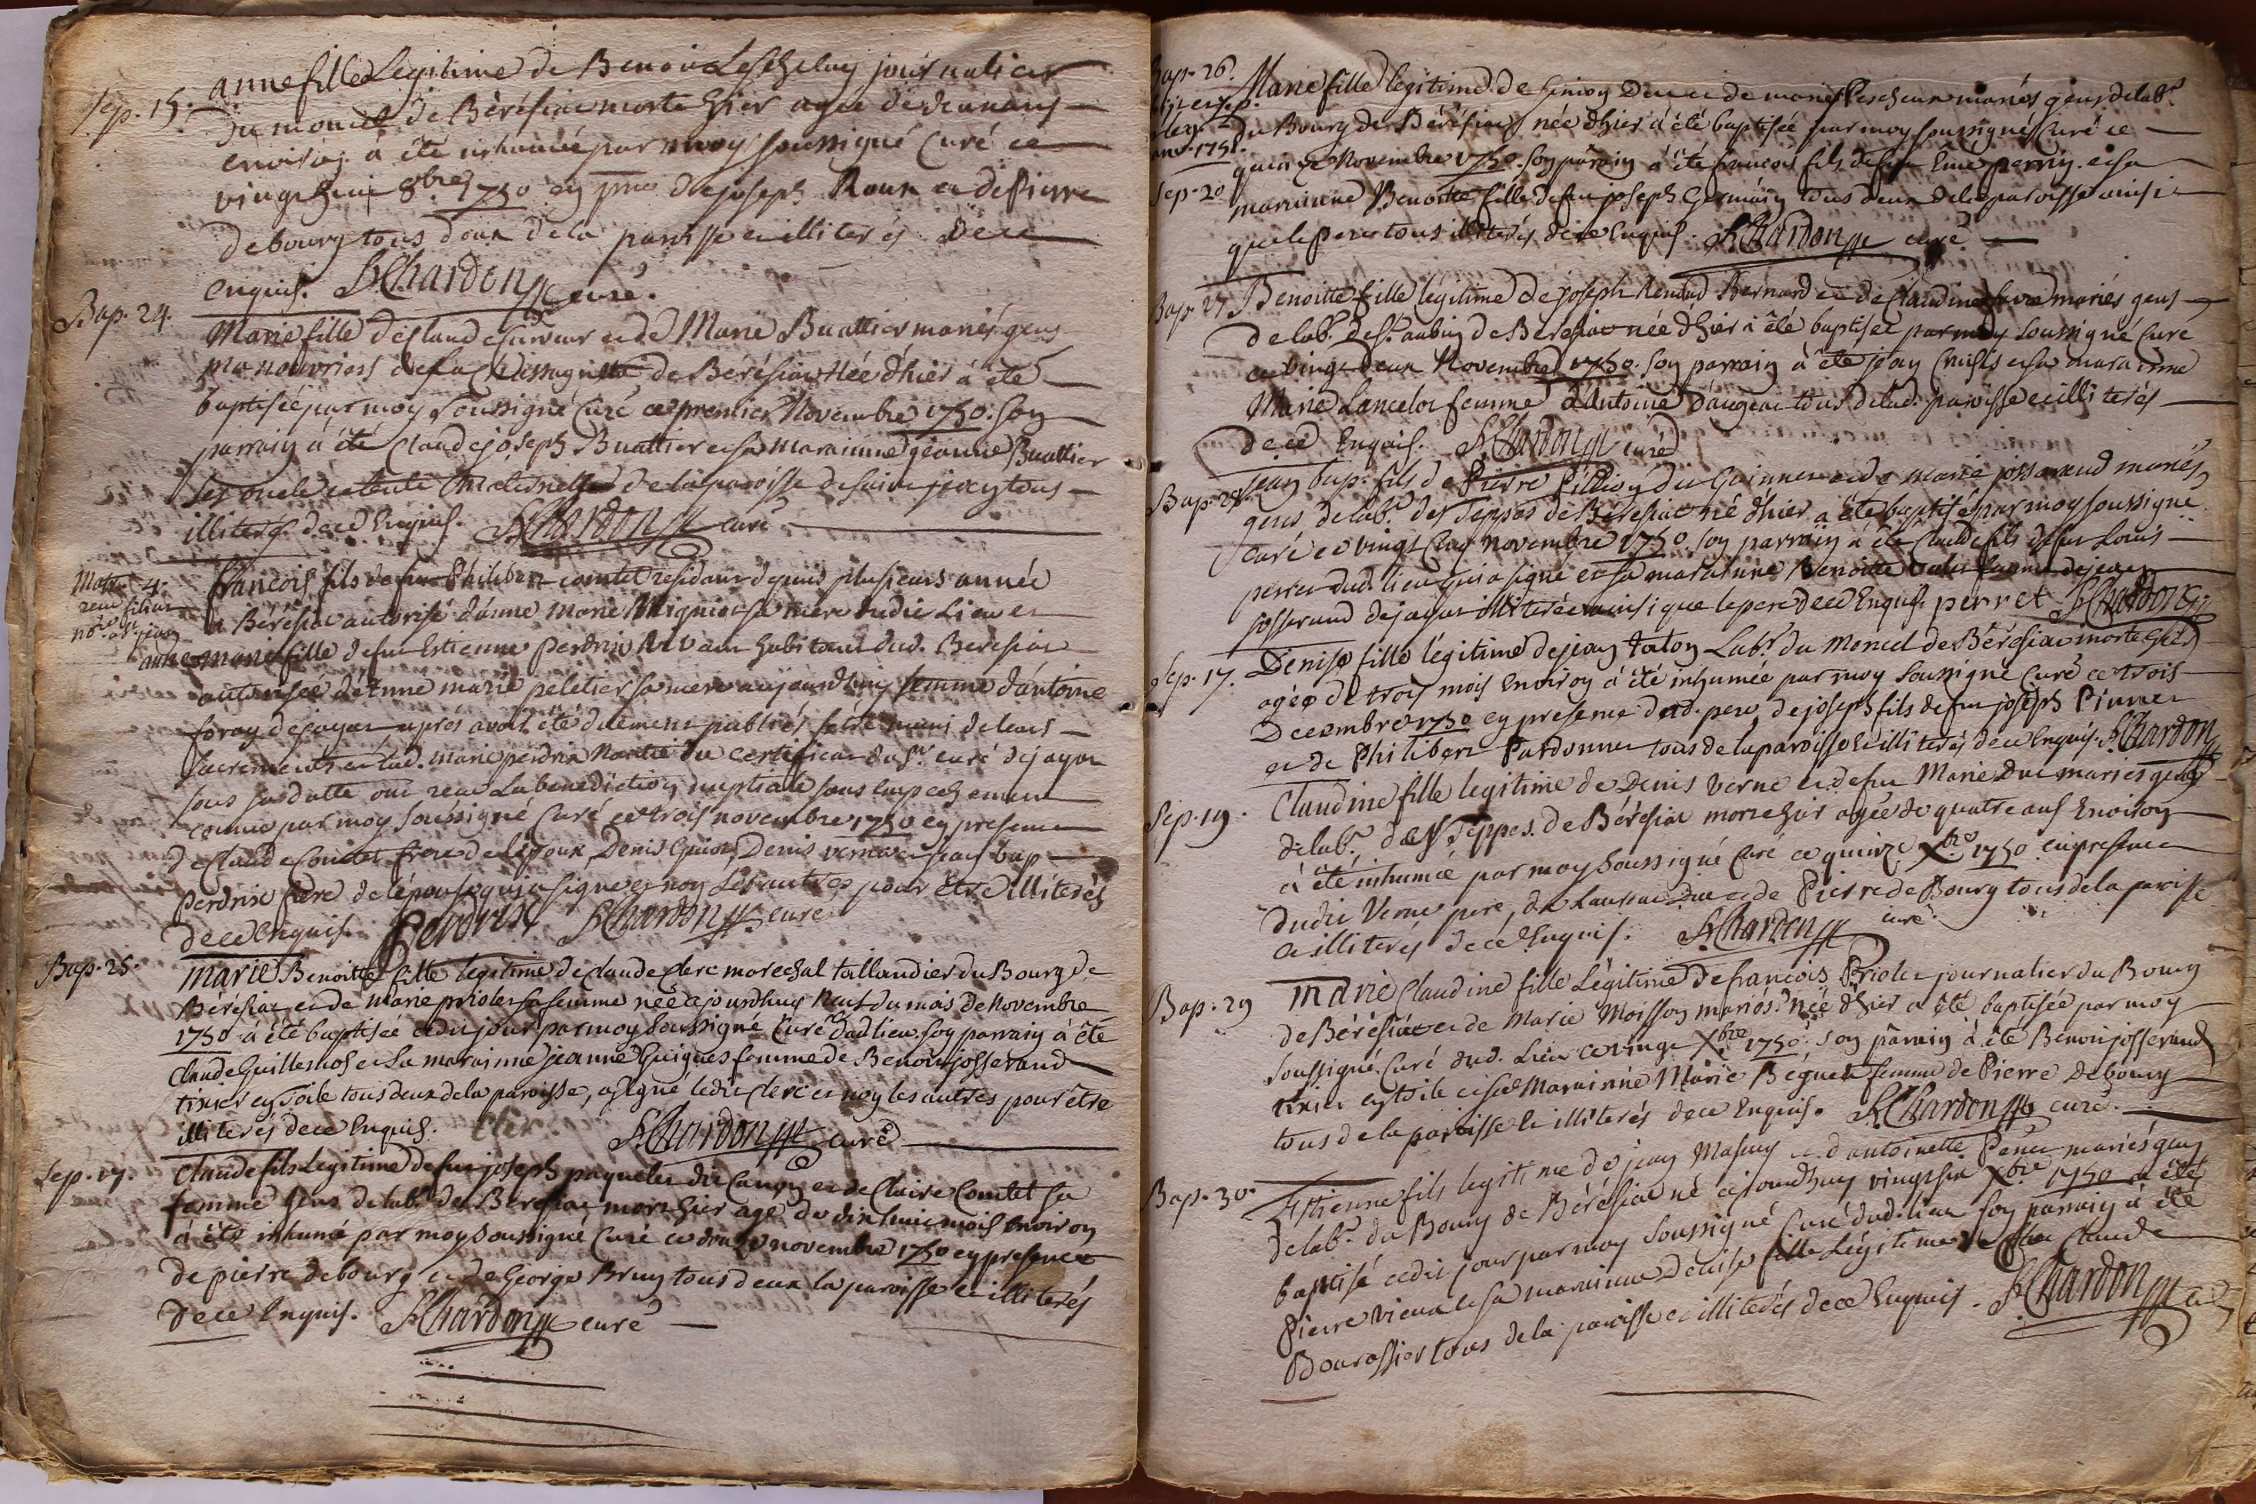 Sep. 15. anne fille Legitime de Benoit journalier
du moncel de Bérésiac morte hier agée de deux ans
environ a été inhumée par moy soussigné Curé ce
vingt huit 8bre 1750 en pnce de joseph Roux et de Pierre
debourg tous deux de la paroisse et illiterés de ce
enquis. Chardon curé.
Bap. 24. Marie fille de Claude et de Marie Buattier mariés gens
manouvriers de la de Berésiac Née d'hier a été
baptisée par moy soussigné Curé ce premier Novembre 1750. Son
parrain a été Claude joseph Buattier et sa marainne jeanne Buattier
ses oncle et tante maternels de la paroisse de saint tous
illiterés de ce Enquis. Chardon curé
Mar. 4. francois fils de feu Philibert comtet residant depuis plusieurs année
a Bérésiac autorisé d'anne Marie sa mere dudit Lieu et
anne marie fille de feu Estienne perdrix vivant habitant dud. Beresiac
autorisée d'Anne marie peletier sa mere aujourdhuy femme d'antoine
foray de jayat après avoir été duement publiés futurs de leurs
sacrements et lad. marie perdrix Nantie du certificat du sr. curé de jayat
sous sa datte ont recu La benediction nuptiale sans empechement
connu par moy soussigné Curé ce trois novembre 1750 en presence
de Claude Comtet frere de l'epoux, Denis Guiot, Denis et jean bap
perdrix frere de l'épouse qui a signé et non les autres pour être illiterés
de ce enquis. Perdrix Chardon curé
Bap. 25. Marie Benoitte fille legitime de Claude Clerc marechal tallandier du Bourg de
Bérésiac et de Marie priolet sa femme née ajourdhuy huit du mois de Novembre
1750 a été baptisée cedit jour par moy Soussigné Curé dud lieu. son parrain a été
Claude Guillemot et La marainne jeanne Guigues femme de Benoit josserand
tixier en toile tous deux de la paroisse, a signé ledit clerc et non les autres pour être
illiterés de ce Enquis. Clerc Chardon curé
Sep. 17. Claude fils Legitime de feu joseph paquelet dit Canon et de Claire Comtet sa
femme gens de labr. de Beresiac mort hier agé de dix huit mois environ
a été inhumé par moy soussigné Curé ce douze novembre 1750 en presence
de pierre debourg et de George Brun tous deux la paroisse et illiterés
de ce Enquis. Chardon curé
Bap. 26. Marie fille legitime de simon et de marie Pescheux mariés gens de labr.
du Bourg de Bérésiac née d'hier a été baptisée par moy soussigné Curé ce
quinze Novembre 1750. son parrain a été francois fils de feu perrin et sa
Sep. 20 marainne Benoitte fille de feu joseph Germain tous deux de la paroisse ainsi
que le pere tous illiterés de ce Enquis. Chardon curé
Bap. 27. Benoitte fille legitime de joseph Renaud Bernard et de Claudine favre mariés gens
de labr. de st. aubin de Beresiac née d'hier a été baptisée par moy soussigné Curé
ce vingt deux Novembre 1750. son parrain a été jean et sa marainne
Marie Lancelot femme d'Antoine Daujeat tous de lad. paroisse et illiterés
de ce Enquis. Chardon curé
Bap. 28. jean bap. fils de Pierre Pillion du et de Marie josserand mariés
gens de labr. des Teppes de Beresiac né d'hier a été baptisé par moy soussigné
Curé ce vingt cinq novembre 1750 son parrain a été Claude fils de feu Louis
perret dud. lieu qui a signé et sa marainne Benoitte femme de jean
josserand de jayat illiterée ainsi que le pere de ce Enquis. perret Chardon
Sep. 17. Denise fille legitime de jean taton Labr. du Moncel de Bérésiac morte hier
agée de trois mois environ a été inhumée par moy soussigné Curé ce trois
Decembre 1750 en presence dud. pere de joseph fils de feu joseph
et de Philibert Pardonnet tous de la paroisse et illiterés de ce Enquis. Chardon
Sep. 19. Claudine fille legitime de Denis verne et de feu Marie Duc mariés gens
de labr. des Teppes de Bérésiac morte hier agée de quatre ans Environ
a été inhumée par moy soussigné Curé ce quinze Xbre 1750 en presence
dudit Verne pere, de Laurent Duc et de Pierre de Bourg tous de la paroisse
et illiterés de ce Enquis. Chardon curé
Bap. 29 Marie Claudine fille Légitime de francois Priolet journalier du Bourg
de Bérésiac et de Marie Moisson mariés née d'hier a été baptisée par moy
soussigné Curé dud. Lieu ce vingt Xbre 1750. son parrain a été Benoit josserand
tixier en toile et sa Marainne Marie Béguet femme de Pierre Debourg
tous de la paroisse et illiterés de ce Enquis. Chardon curé
Bap. 30. Estienne fils legitime de jean Masuy et d'antoinette mariés gens
de labr. du Bourg de Bérésiac né ajourdhuy vingt six Xbre 1750 a été
baptisé cedit jour par moy soussigné Curé dud. Lieu son parrain a été
Pierre vieux et sa marainne Denise fille Légitime de Claude
Bourassier tous de la paroisse et illiterés de ce Enquis. Chardon